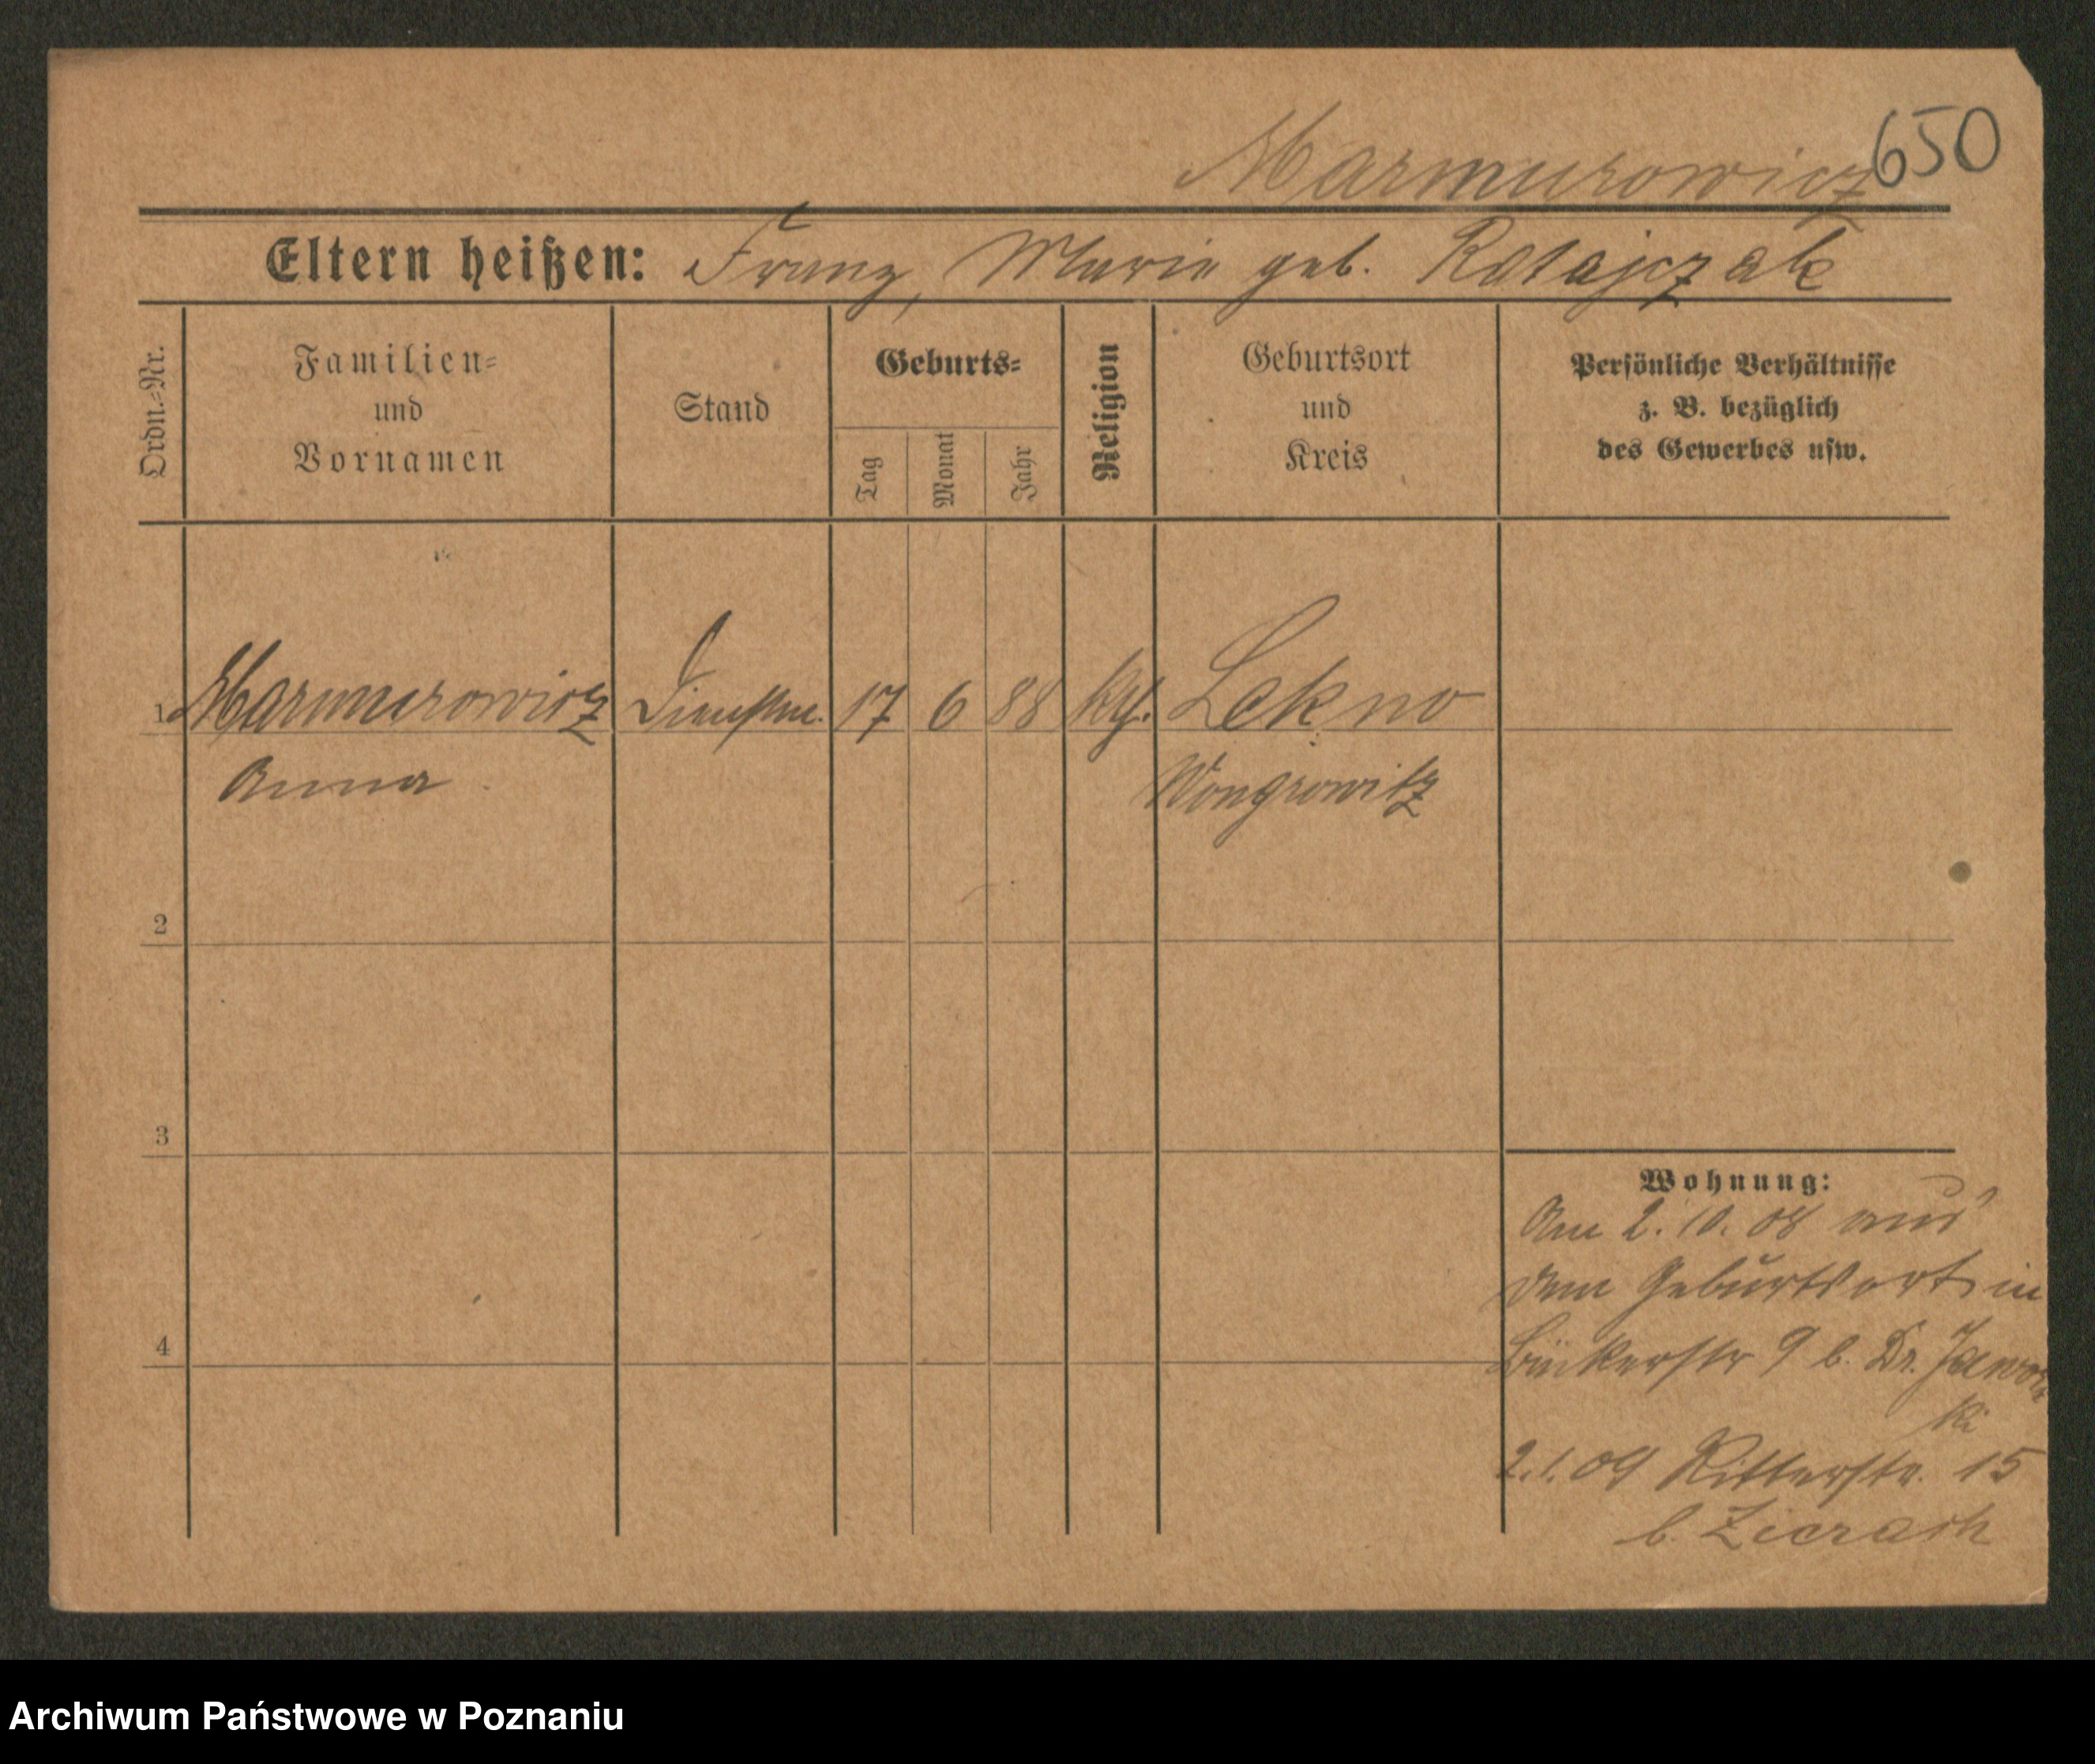 Marmurowicz 650
Eltern heißen: Franz, Marie geb. Ratajczak
Ordn.=Nr.
Familien=
und
Vornamen
Stand
Geburts=
Tag
Monat
Jahr
Religion
Geburtsort
und
Kreis
Persönliche Verhältnisse
z. B. bezüglich
des Gewerbes usw.
1 Marmurowicz Dienstm. 17 6 88 kth. Lekno
Anna Wongrowitz
2
3
4
Wohnung:
Am 2. 10. 08 aus
dem Geburtsort in
9 b. Dr. Jawors
ki
2.1.09 Ritterstr. 15
b.
Archiwum Państwowe w Poznaniu